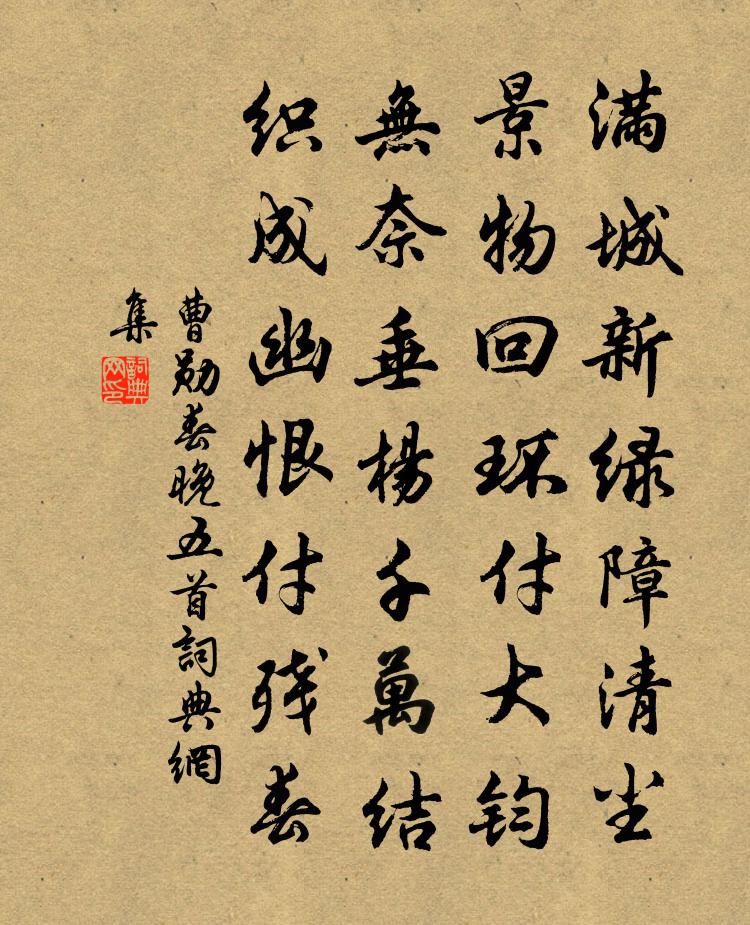 满城新绿障清尘
景物回环付大钧
無奈垂楊千萬结
织成幽恨付残春
曹勋春晚五首詞典網
集
詞典网印